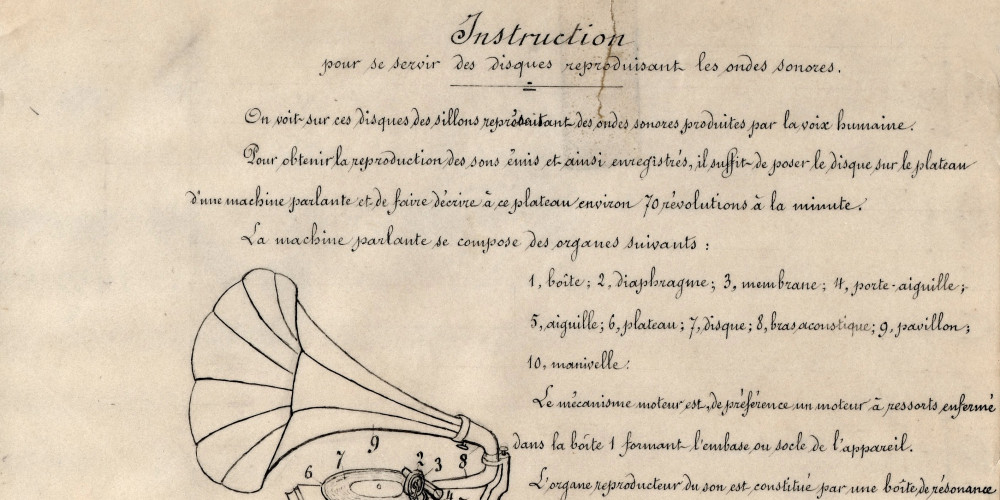 Instruction
pour se servir des disques reproduisant les ondes sonores.
On voit sur ces disques des sillons représentant des ondes sonores produites par la voix humaine.
Pour obtenir la reproduction des sons émis et ainsi enregistrés, il suffit de poser le disque sur le plateau
d'une machine parlante et de faire décrire à ce plateau environ 70 révolutions à la minute.
La machine parlante se compose des organes suivants :
1, boîte ; 2, diaphragme ; 3, membrane ; 4, porte-aiguille ;
5, aiguille ; 6, plateau ; 7, disque ; 8, bras acoustique ; 9, pavillon ;
10, manivelle.
Le mécanisme moteur est, de préférence un moteur à ressorts enfermé
dans la boîte 1 formant l'embase ou socle de l'appareil.
L'organe reproducteur du son est constitué par une boîte de résonance
9
6 7 2 3 8
4